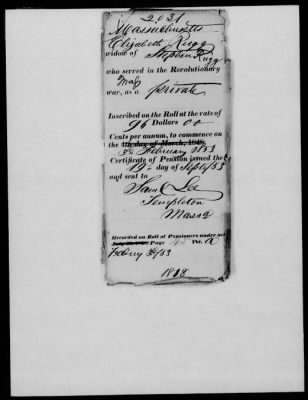 2021
Massachusetts
Elizabeth Rugg
widow of Stephen Rugg
who served in the Revolutionary
war, as a private
Inscribed on the Roll at the rate of
96 Dollars 00
Cents per annum, to commence on
the 4th day of March, 1848,
3d February 1853
Certificate of Pension issued the
19th day of Sept 53
and sent to
Saml Lee
Templeton
Mass
Recorded on Roll of Pensioners under act
Page Vol. A
Feby 3d/53